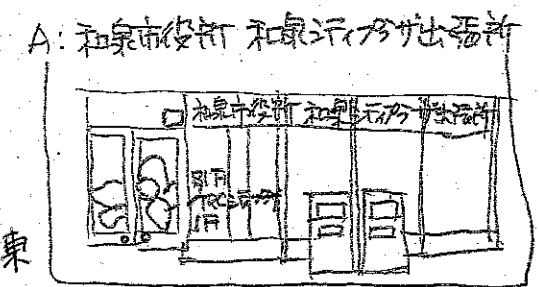 A: 和泉市役所 和泉シティプラザ出張所
和泉市役所 和泉シティプラザ出張所
東